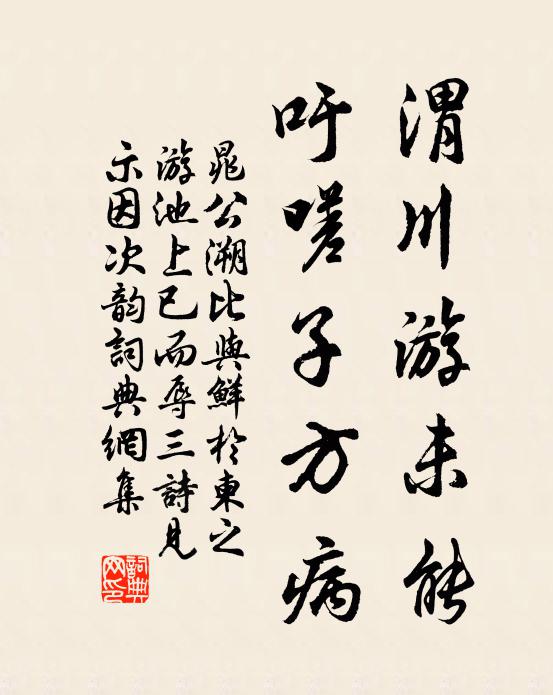 渭川游未能
吁嗟子方病
晁公溯比與鮮於東之
游池上已而辱三詩見
示因次韵詞典網集
詞典网印